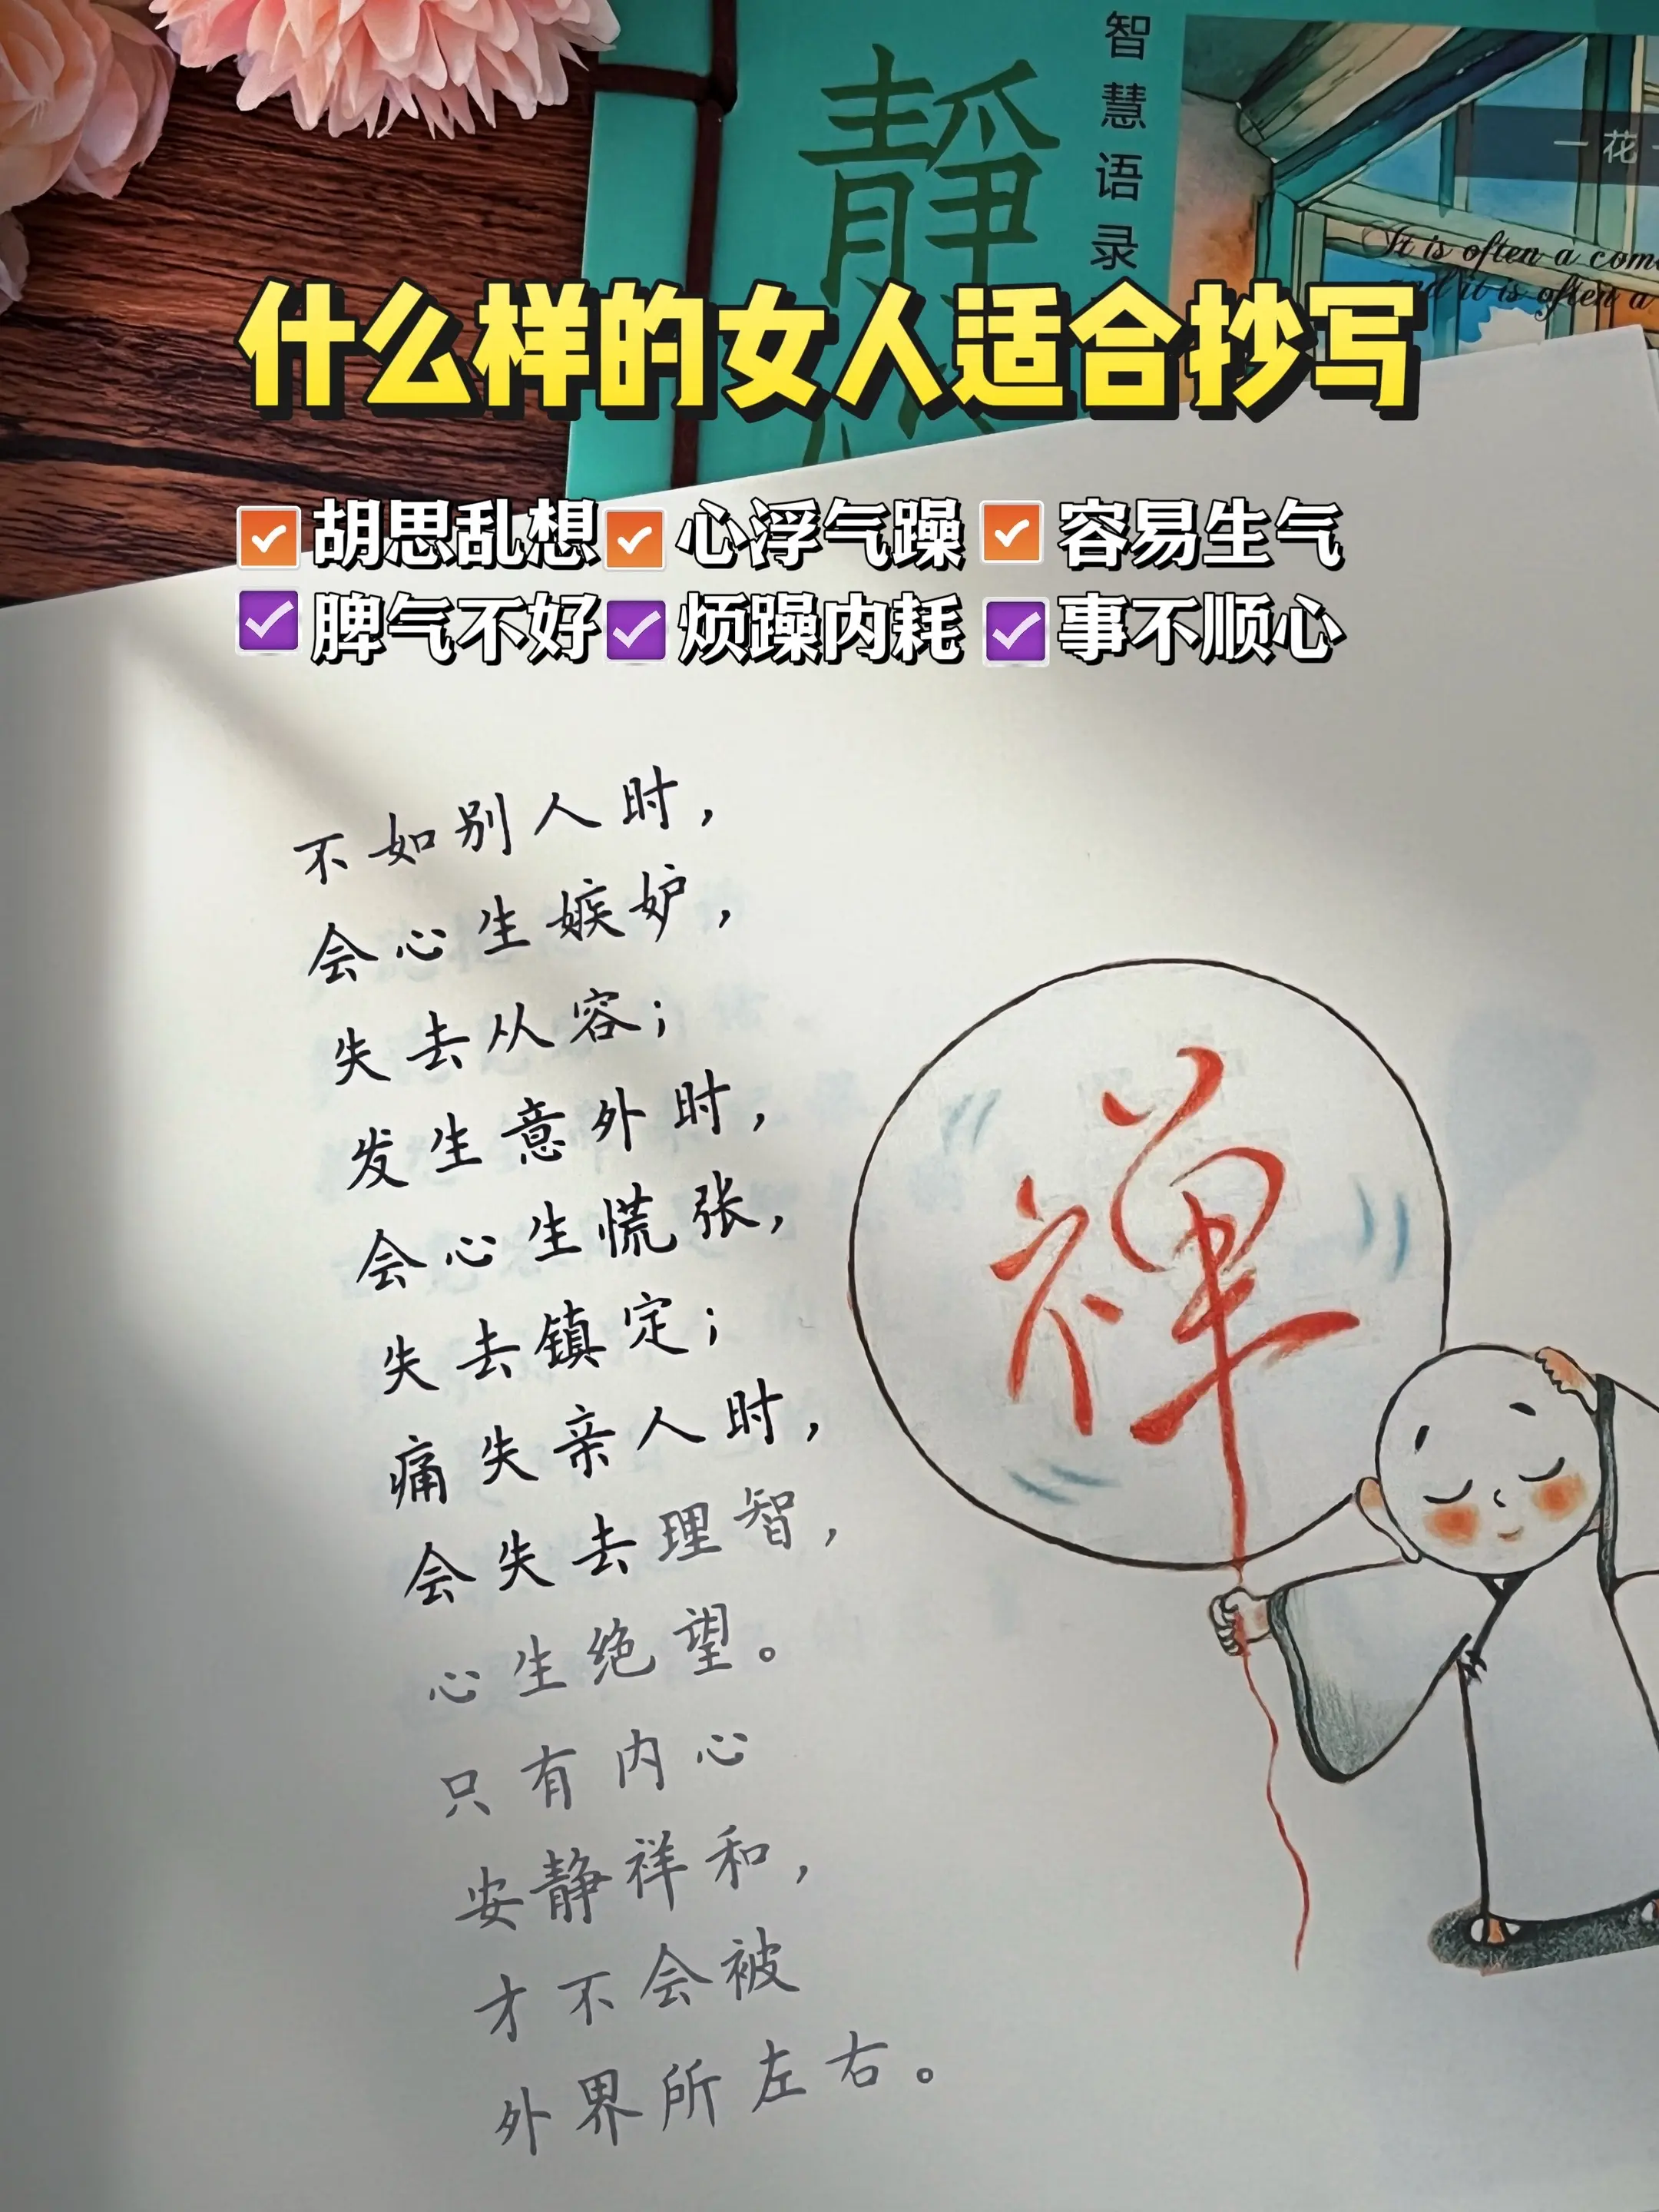 智慧语录
靜
一花一
It is often a
and it is often a
什么样的女人适合抄写
胡思乱想 心浮气躁 容易生气
脾气不好 烦躁内耗 事不顺心
不如别人时，
会心生嫉妒，
失去从容；
发生意外时，
会心生慌张，
失去镇定；
痛失亲人时，
会失去理智，
心生绝望。
只有内心
安静祥和，
才不会被
外界所左右。
禅